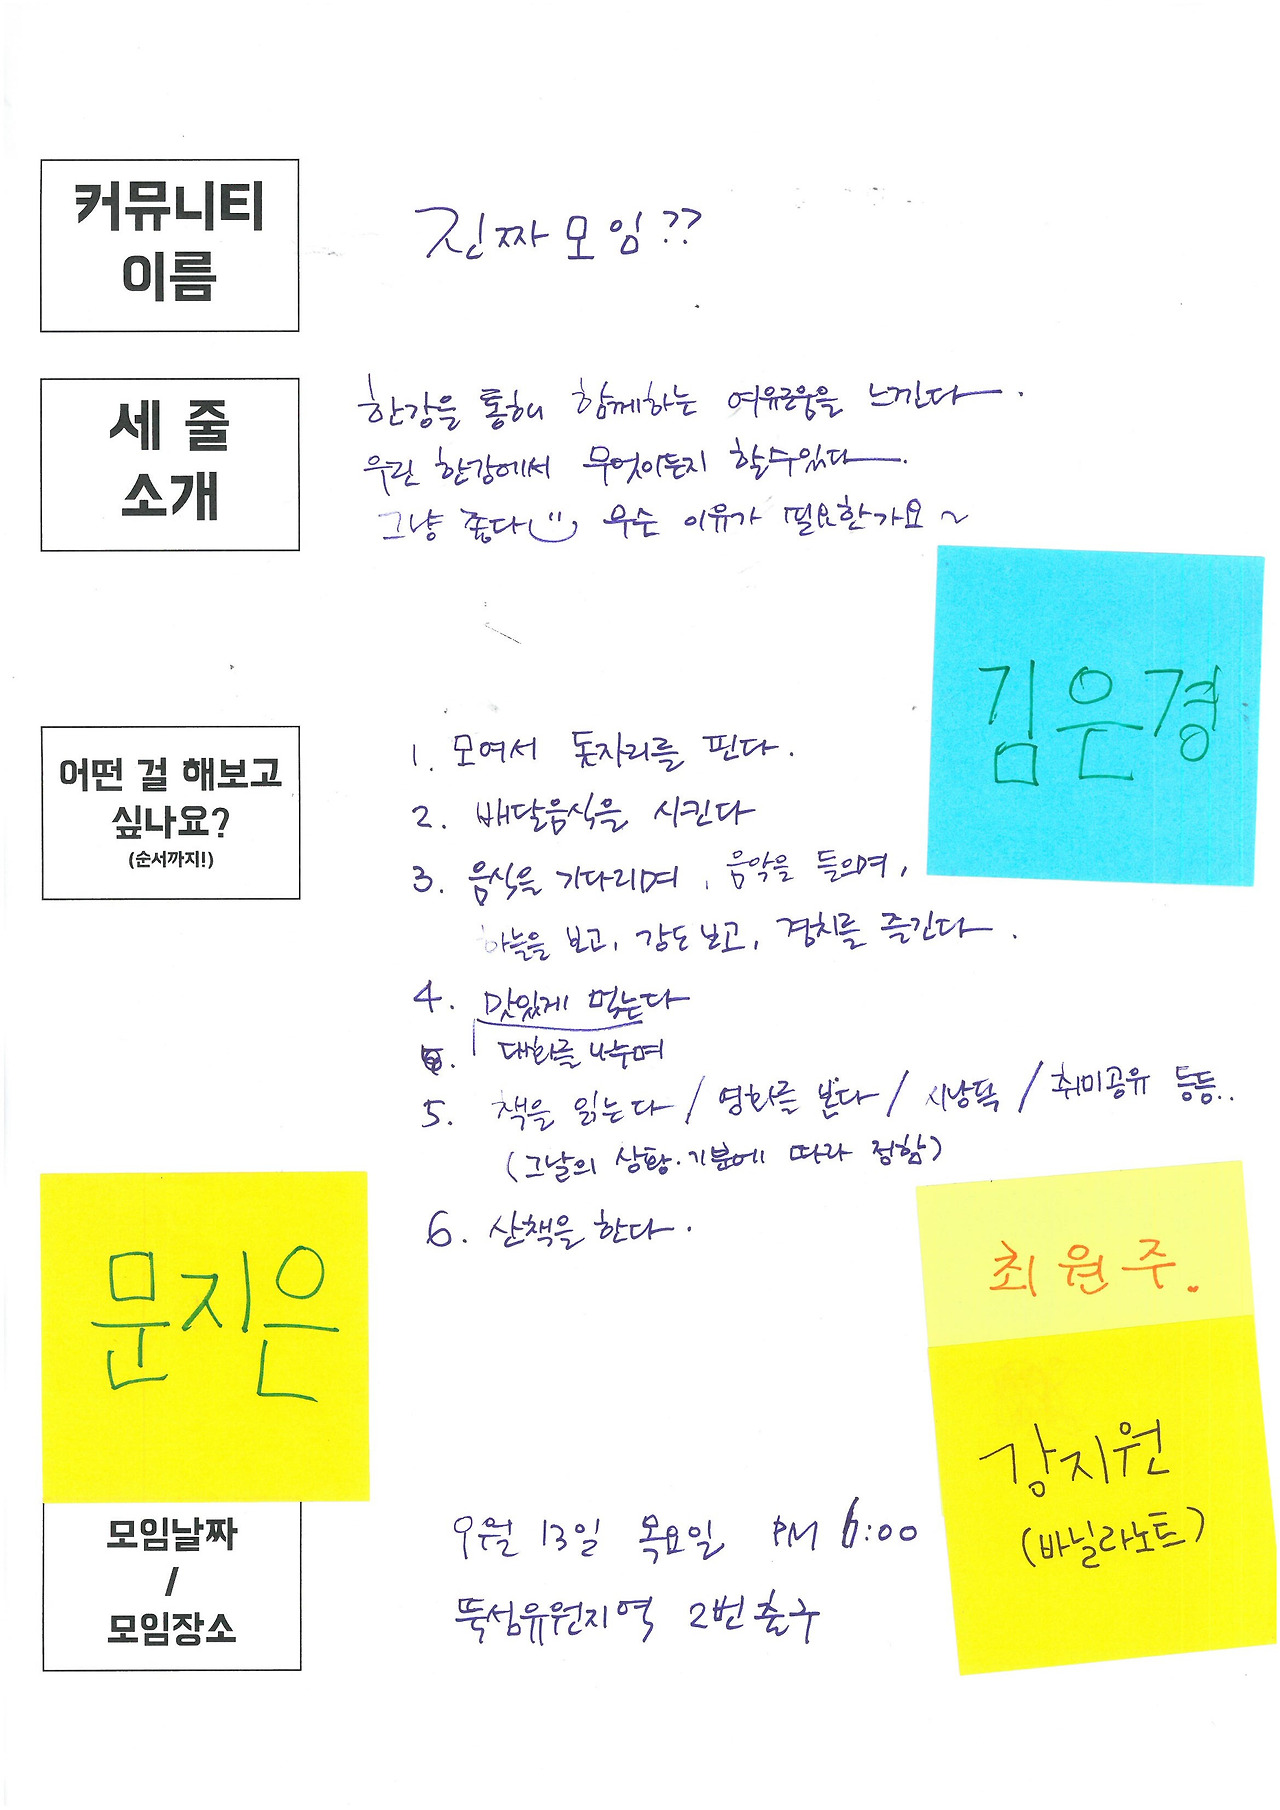 커뮤니티
이름
진짜모임??
세 줄
소개
한강을 통해 함께하는 여유로움을 느낀다.
우린 한강에서 무엇이든지 할수있다.
그냥 좋다 무슨 이유가 필요한가요~
김은경
어떤 걸 해보고
싶나요?
(순서까지!)
1. 모여서 돗자리를 핀다.
2. 배달음식을 시킨다
3. 음식을 기다리며, 음악을 들으며,
하늘을 보고, 강도 보고, 경치를 즐긴다.
4. 맛있게 먹는다
대화를 나누며
5. 책을 읽는다 / 영화를 본다 / 시낭독 / 취미공유 등등..
(그날의 상황·기분에 따라 정함)
6. 산책을 한다.
문지은
최원주.
강지원
(바닐라노트)
모임날짜
/
모임장소
9월 13일 목요일 PM 6:00
뚝섬유원지역 2번출구